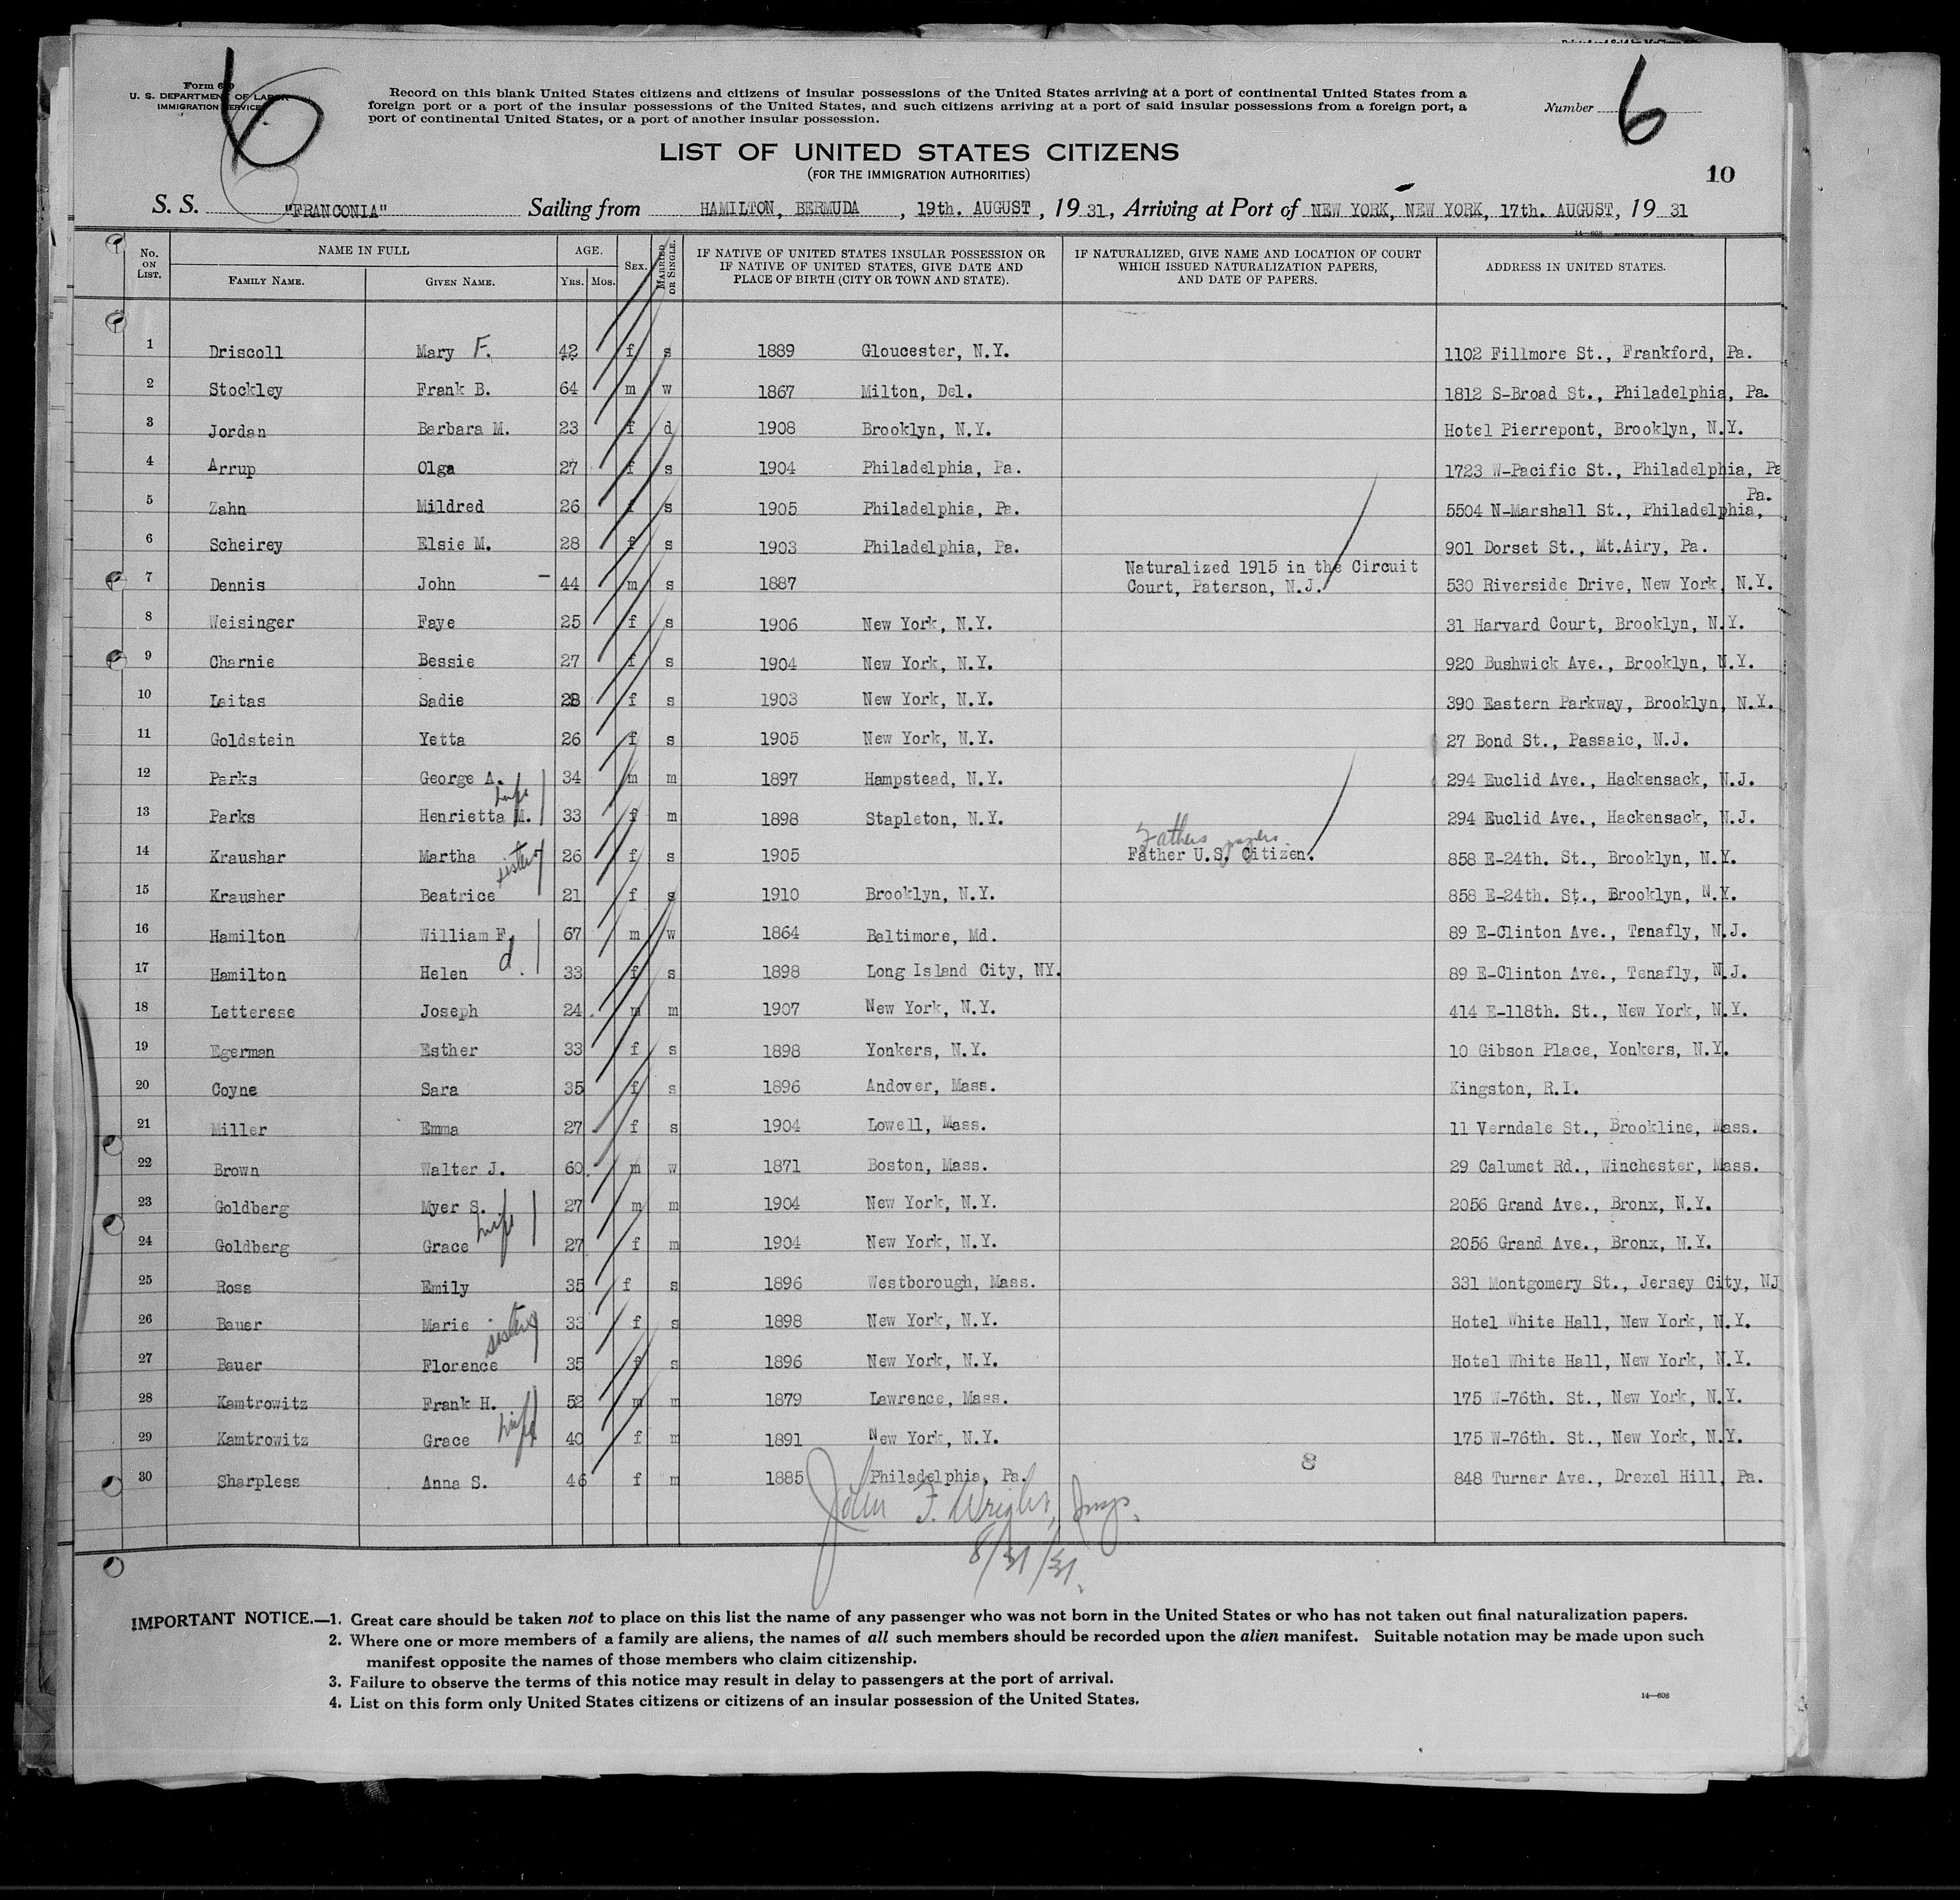 Form 630
U. S. DEPARTMENT OF LABOR
IMMIGRATION SERVICE
6
Record on this blank United States citizens and citizens of insular possessions of the United States arriving at a port of continental United States from a
foreign port or a port of the insular possessions of the United States, and such citizens arriving at a port of said insular possessions from a foreign port, a
port of continental United States, or a port of another insular possession.
Number 6
LIST OF UNITED STATES CITIZENS
(FOR THE IMMIGRATION AUTHORITIES)
10
S. S. "FRANCONIA" Sailing from HAMILTON, BERMUDA, 19th. AUGUST, 1931, Arriving at Port of NEW YORK, NEW YORK, 17th. AUGUST, 1931
14—608
No. ON LIST. NAME IN FULL FAMILY NAME. GIVEN NAME. AGE. YRS. MOS. SEX. MARRIED OR SINGLE. IF NATIVE OF UNITED STATES INSULAR POSSESSION OR IF NATIVE OF UNITED STATES, GIVE DATE AND PLACE OF BIRTH (CITY OR TOWN AND STATE). IF NATURALIZED, GIVE NAME AND LOCATION OF COURT WHICH ISSUED NATURALIZATION PAPERS, AND DATE OF PAPERS. ADDRESS IN UNITED STATES.
1 Driscoll Mary F. 42 f s 1889 Gloucester, N.Y. 1102 Fillmore St., Frankford, Pa.
2 Stockley Frank B. 64 m w 1867 Milton, Del. 1812 S-Broad St., Philadelphia, Pa.
3 Jordan Barbara M. 23 f d 1908 Brooklyn, N.Y. Hotel Pierrepont, Brooklyn, N.Y.
4 Arrup Olga 27 f s 1904 Philadelphia, Pa. 1723 W-Pacific St., Philadelphia, Pa
5 Zahn Mildred 26 f s 1905 Philadelphia, Pa. 5504 N-Marshall St., Philadelphia, Pa.
6 Scheirey Elsie M. 28 f s 1903 Philadelphia, Pa. 901 Dorset St., Mt.Airy, Pa.
7 Dennis John - 44 m s 1887 Naturalized 1915 in the Circuit Court, Paterson, N.J. 530 Riverside Drive, New York, N.Y.
8 Weisinger Faye 25 f s 1906 New York, N.Y. 31 Harvard Court, Brooklyn, N.Y.
9 Charnie Bessie 27 f s 1904 New York, N.Y. 920 Bushwick Ave., Brooklyn, N.Y.
10 Laitas Sadie 28 f s 1903 New York, N.Y. 390 Eastern Parkway, Brooklyn, N.Y.
11 Goldstein Yetta 26 f s 1905 New York, N.Y. 27 Bond St., Passaic, N.J.
12 Parks George A. 34 m m 1897 Hampstead, N.Y. 294 Euclid Ave., Hackensack, N.J.
13 Parks Henrietta M. wife 33 f m 1898 Stapleton, N.Y. 294 Euclid Ave., Hackensack, N.J.
Fathers papers
14 Kraushar Martha 26 f s 1905 Father U.S. Citizen. 858 E-24th. St., Brooklyn, N.Y.
15 Krausher Beatrice sister 21 f s 1910 Brooklyn, N.Y. 858 E-24th. St., Brooklyn, N.Y.
16 Hamilton William F. 67 m w 1864 Baltimore, Md. 89 E-Clinton Ave., Tenafly, N.J.
17 Hamilton Helen d. 33 f s 1898 Long Island City, NY. 89 E-Clinton Ave., Tenafly, N.J.
18 Letterese Joseph 24 m m 1907 New York, N.Y. 414 E-118th. St., New York, N.Y.
19 Egerman Esther 33 f s 1898 Yonkers, N.Y. 10 Gibson Place, Yonkers, N.Y.
20 Coyne Sara 35 f s 1896 Andover, Mass. Kingston, R.I.
21 Miller Emma 27 f s 1904 Lowell, Mass. 11 Verndale St., Brookline, Mass.
22 Brown Walter J. 60 m w 1871 Boston, Mass. 29 Calumet Rd., Winchester, Mass.
23 Goldberg Myer S. 27 m m 1904 New York, N.Y. 2056 Grand Ave., Bronx, N.Y.
24 Goldberg Grace wife 27 f m 1904 New York, N.Y. 2056 Grand Ave., Bronx, N.Y.
25 Ross Emily 35 f s 1896 Westborough, Mass. 331 Montgomery St., Jersey City, NJ
26 Bauer Marie 33 f s 1898 New York, N.Y. Hotel White Hall, New York, N.Y.
27 Bauer Florence sister 35 f s 1896 New York, N.Y. Hotel White Hall, New York, N.Y.
28 Kamtrowitz Frank H. 52 m m 1879 Lawrence, Mass. 175 W-76th. St., New York, N.Y.
29 Kamtrowitz Grace wife 40 f m 1891 New York, N.Y. 175 W-76th. St., New York, N.Y.
8
30 Sharpless Anna S. 46 f m 1885 Philadelphia, Pa. 848 Turner Ave., Drexel Hill, Pa.
John F. Wright, Insp.
8/31/31.
IMPORTANT NOTICE.—1. Great care should be taken not to place on this list the name of any passenger who was not born in the United States or who has not taken out final naturalization papers.
2. Where one or more members of a family are aliens, the names of all such members should be recorded upon the alien manifest. Suitable notation may be made upon such
manifest opposite the names of those members who claim citizenship.
3. Failure to observe the terms of this notice may result in delay to passengers at the port of arrival.
4. List on this form only United States citizens or citizens of an insular possession of the United States.
14—608